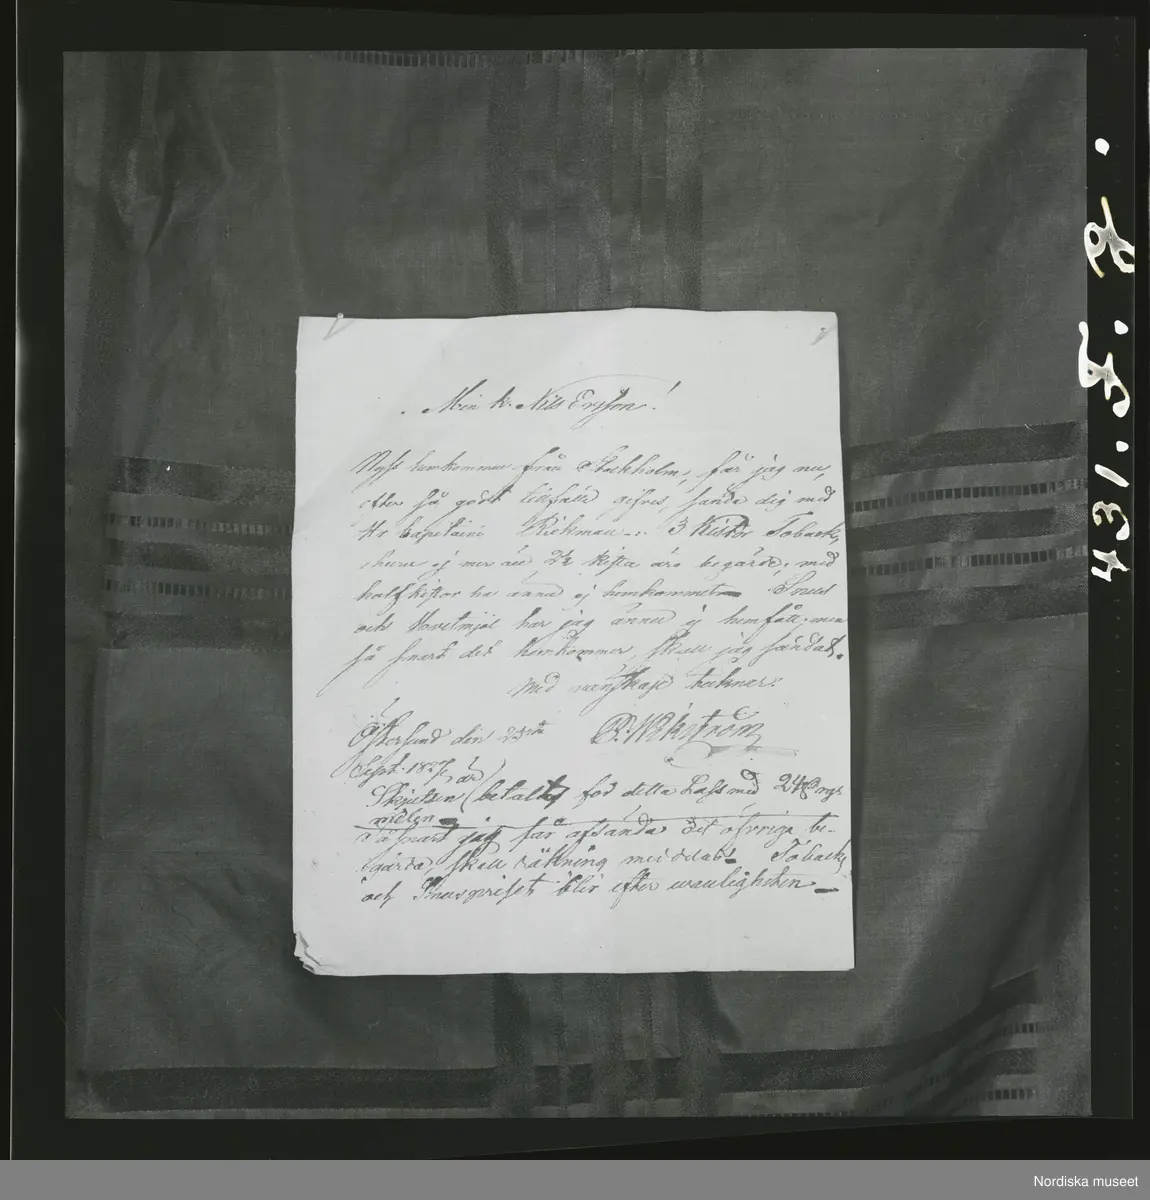 Min k. Nills Ersson!
Nyss hemkommen från Stockholm, får jag nu,
efter så godt tillfälle gifves, sända dig med
Hr Capitaine Richman -: 3 Kistor Toback,
ehuru ej mer än 2½ kista äro begärde; med
halfkistor ha ännu ej hemkommit - Snus
och Hvetmjöl har jag ännu ej hemfått, men
så snart det hemkommer, skall jag sändat.
Med vänskap tecknar:
Östersund den 25te
Sept. 1827.
Skjutsen är (betalt) för detta Lass med 24
milen
Så snart jag får afsända det öfriga be-
gärda, skall räkning meddelas - Toback
och Snuspriset blir efter vanligheten -
431.I.g.
Nordiska museet